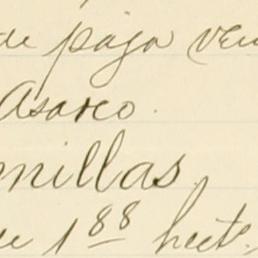 de paja ven
Asareo.
millas
de 1 88 hects.